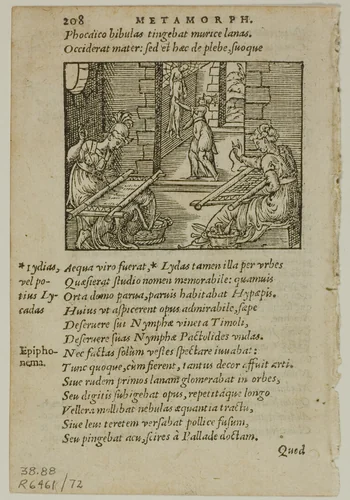 208 METAMORPH.
Phocaico bibulas tingebat murice lanas.
Occiderat mater: sed et hæc de plebe, suoque
*Lydias, vel potius Lycadas
Aequa viro fuerat, * Lydas tamen illa per vrbes
Quæsierat studio nomen memorabile: quamuis
Orta domo parua, paruis habitabat Hypæpis.
Huius vt aspicerent opus admirabile, sæpe
Deseruere sui Nymphæ vineta Timoli,
Deseruere suas Nymphæ Pactolides vndas.
Epiphonema.
Nec factas solùm vestes spectare iuuabat:
Tunc quoque, cùm fierent, tantus decor affuit arti.
Siue rudem primos lanam glomerabat in orbes,
Seu digitis subigebat opus, repetitáque longo
Vellera mollibat nebulas æquantia tractu,
Siue leui teretem versabat pollice fusum,
Seu pingebat acu, scires à Pallade doctam.
Quod
38.88
R6461/72